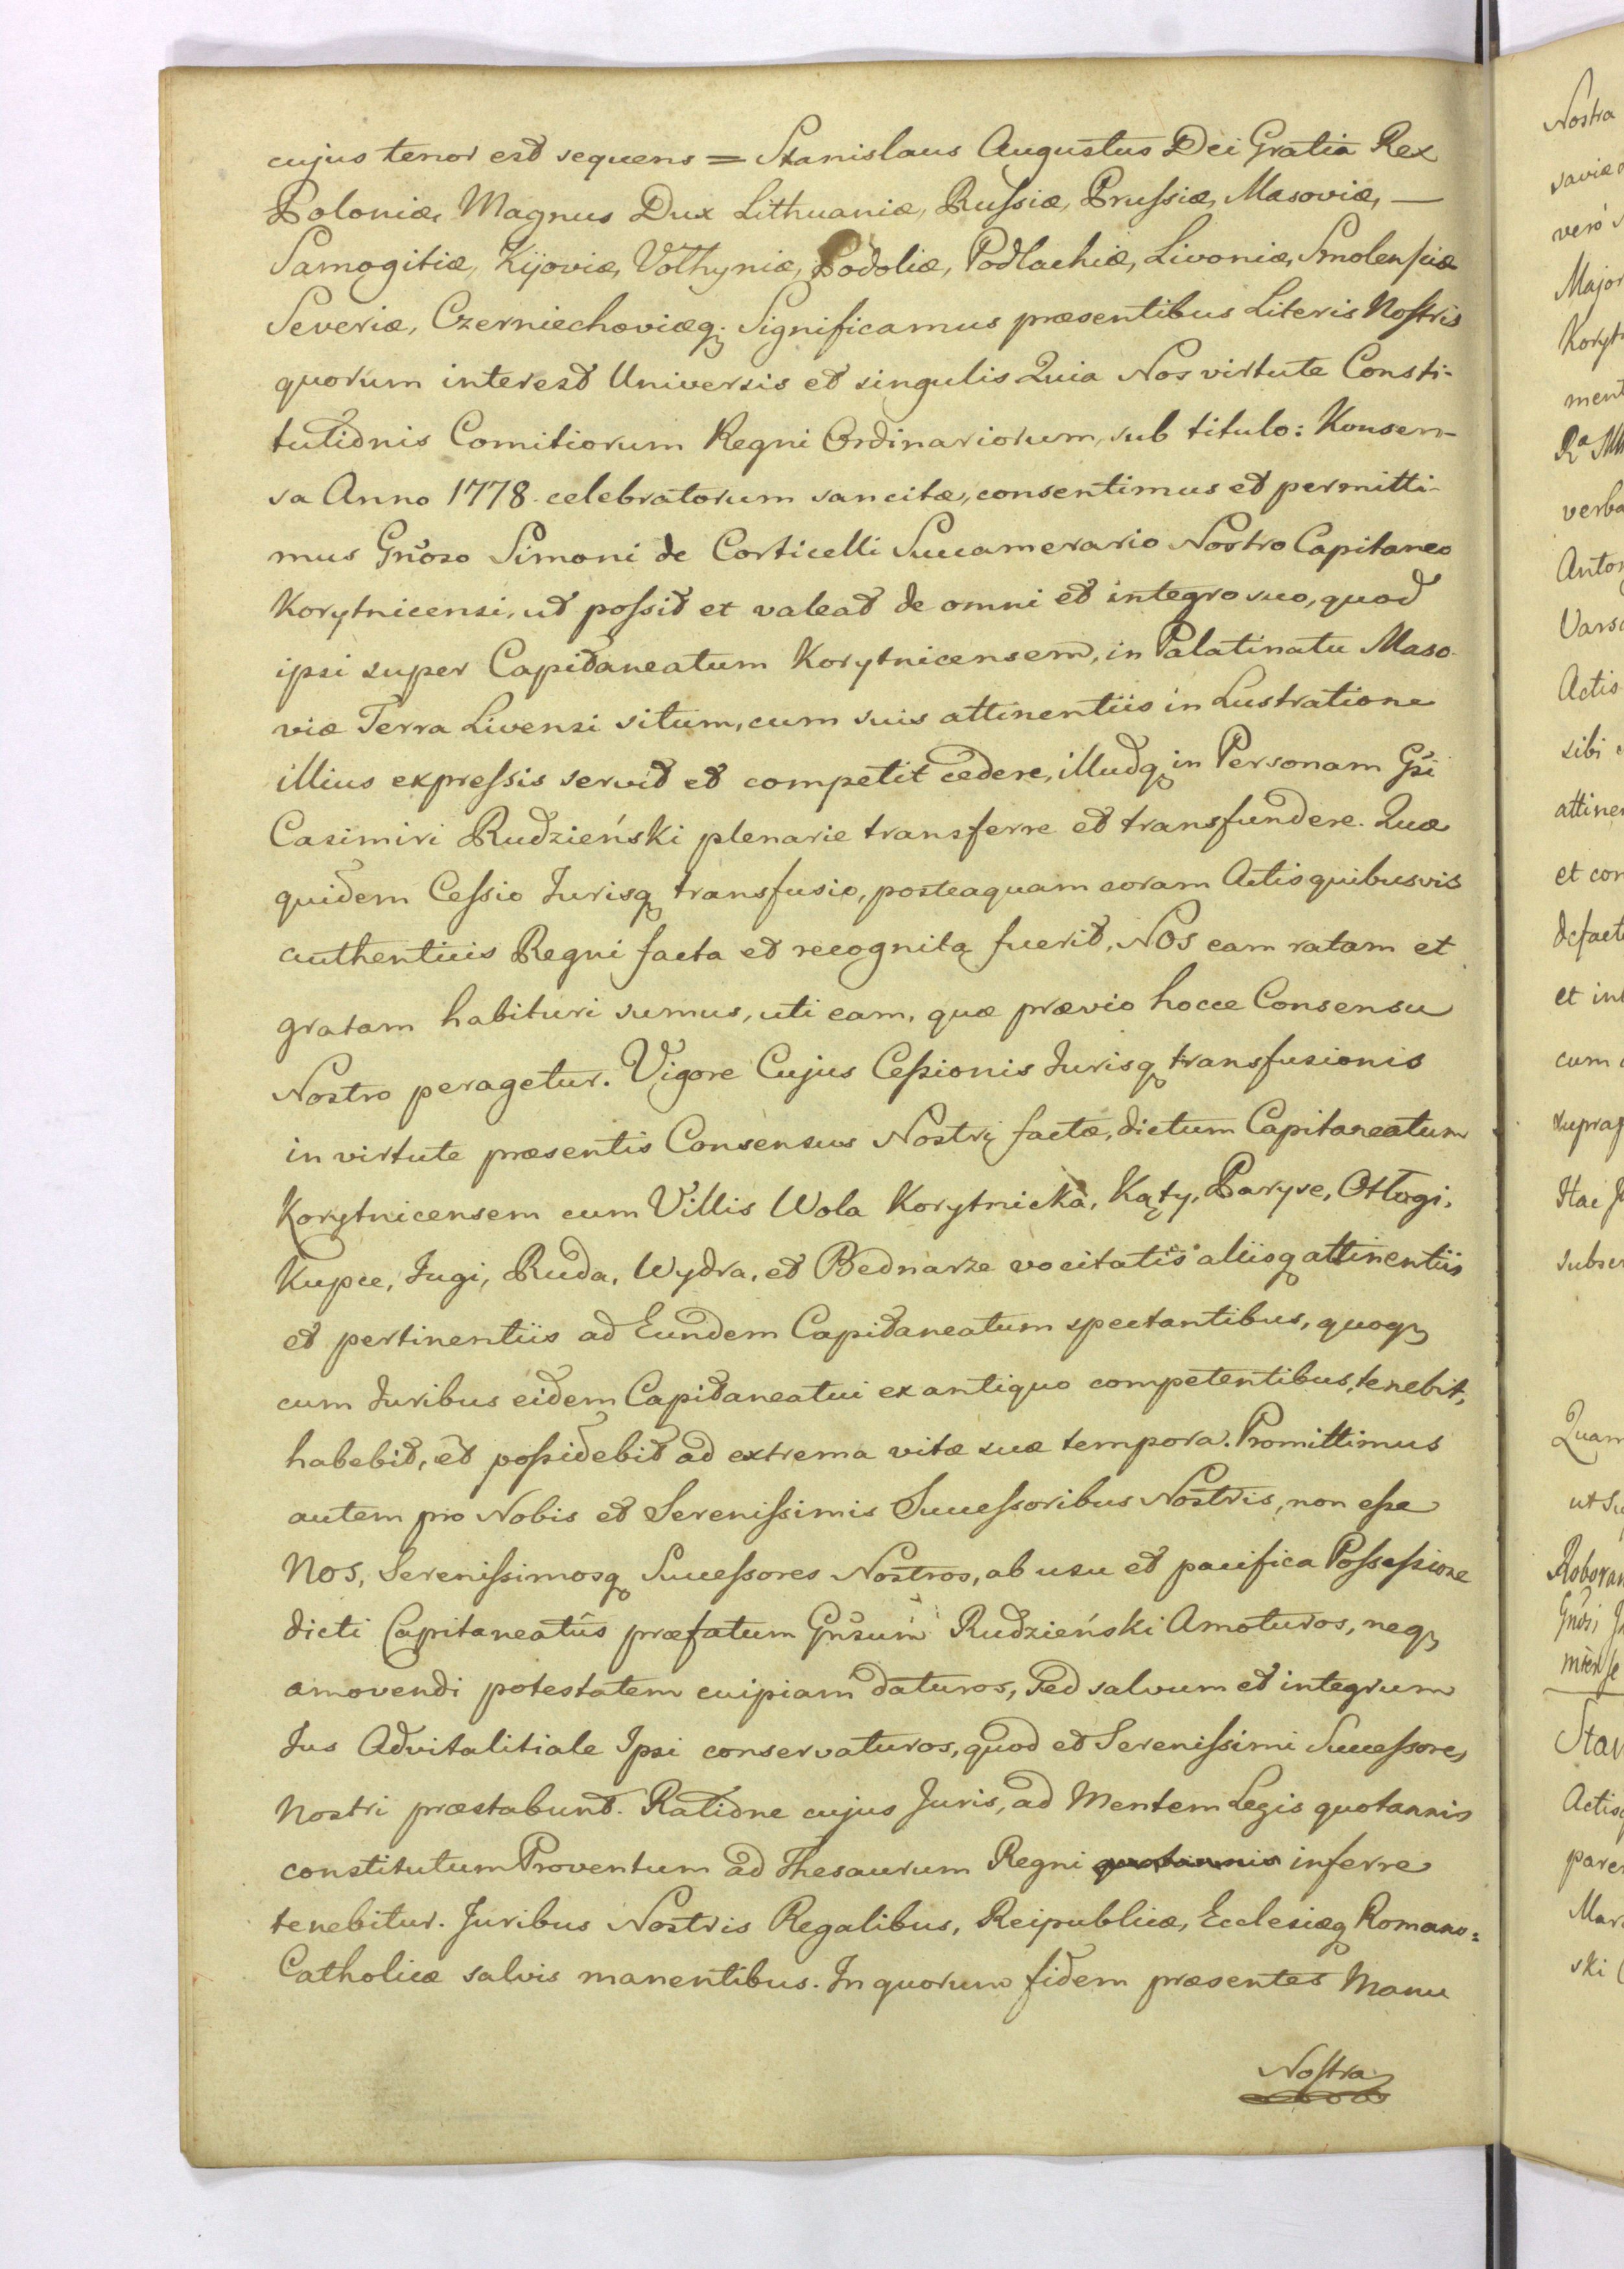 cujus tenor est sequens = Stanislaus Augustus Dei Gratia Rex
Poloniæ, Magnus Dux Lithuaniæ, Russiæ, Prussiæ, Masoviæ, —
Samogitiæ, Kijoviæ, Volhyniæ, Podoliæ, Podlachiæ, Livoniæ, Smolensciæ
Severiæ, Czerniechoviæq; Significamus præsentibus Literis Nostris
quorum interest Universis et singulis Quia Nos virtute Consti-
tutionis Comitiorum Regni Ordinariorum, sub titulo: Konsen-
sa Anno 1778. celebratorum sancitæ, consentimus et permitti-
mus Gñoso Simoni de Corticelli Succamerario Nostro Capitaneo
Korytnicensi, ut possit et valeat de omni et integro suo, quod
ipsi super Capitaneatum Korytnicensem, in Palatinatu Maso-
viæ Terra Livensi situm, cum suis attinentiis in Lustratione
illius expressis servit et competit cedere, illudq in Personam Gsi
Casimiri Rudzieński plenarie transferre et transfundere. Quæ
quidem Cessio Jurisq transfusio, posteaquam coram Actis quibusvis
authenticis Regni facta et recognita fuerit, NOS eam ratam et
gratam habituri sumus, uti eam, quæ prævio hocce Consensu
Nostro peragetur. Vigore Cujus Cessionis Jurisq transfusionis
in virtute præsentis Consensus Nostri factæ, dictum Capitaneatum
Korytnicensem cum Villis Wola Korytnicka, Kąty, Paryse, Otłogi,
Kupce, Jugi, Ruda, Wydra, et Bednarze vocitatis aliisq attinentiis
et pertinentiis ad Eundem Capitaneatum spectantibus, quoq
cum Juribus eidem Capitaneatui ex antiquo competentibus, tenebit,
habebit, et possidebit ad extrema vitæ suæ tempora. Promittimus
autem pro Nobis et Serenissimis Successoribus Nostris, non esse
Nos, Serenissimosq Successores Nostros, ab usu et pacifica Possessione
dicti Capitaneatûs præfatum Gñsum Rudzieński Amoturos, neq
amovendi potestatem cuipiam daturos, sed salvum et integrum
Jus Advitalitiale Ipsi conservaturos, quod et Serenissimi Successores
Nostri præstabunt. Ratione cujus Juris, ad Mentem Legis quotannis
constitutum Proventum ad Thesaurum Regni quotannis inferre
tenebitur. Juribus Nostris Regalibus, Reipublicæ, Ecclesiæq Romano=
Catholicæ salvis manentibus. In quorum fidem præsentes Manu
Nostra
Nostra
saviæ
verò
Major
Koryt
ment
verba
Anton
Vars
Actis
sibi
attine
et con
defact
et int
cum
supra
Hac
subscr
Quam
ut Su
Roboran
Gñosi
Stan
Actis
pare
Mar
ski